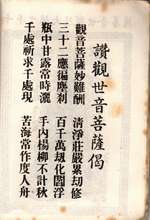 讚觀世音菩薩偈
觀音菩薩妙難酬 清淨莊嚴累劫修
三十二應徧塵刹 百千萬劫化閻浮
瓶中甘露常時灑 手內楊柳不計秋
千處祈求千處現 苦海常作度人舟